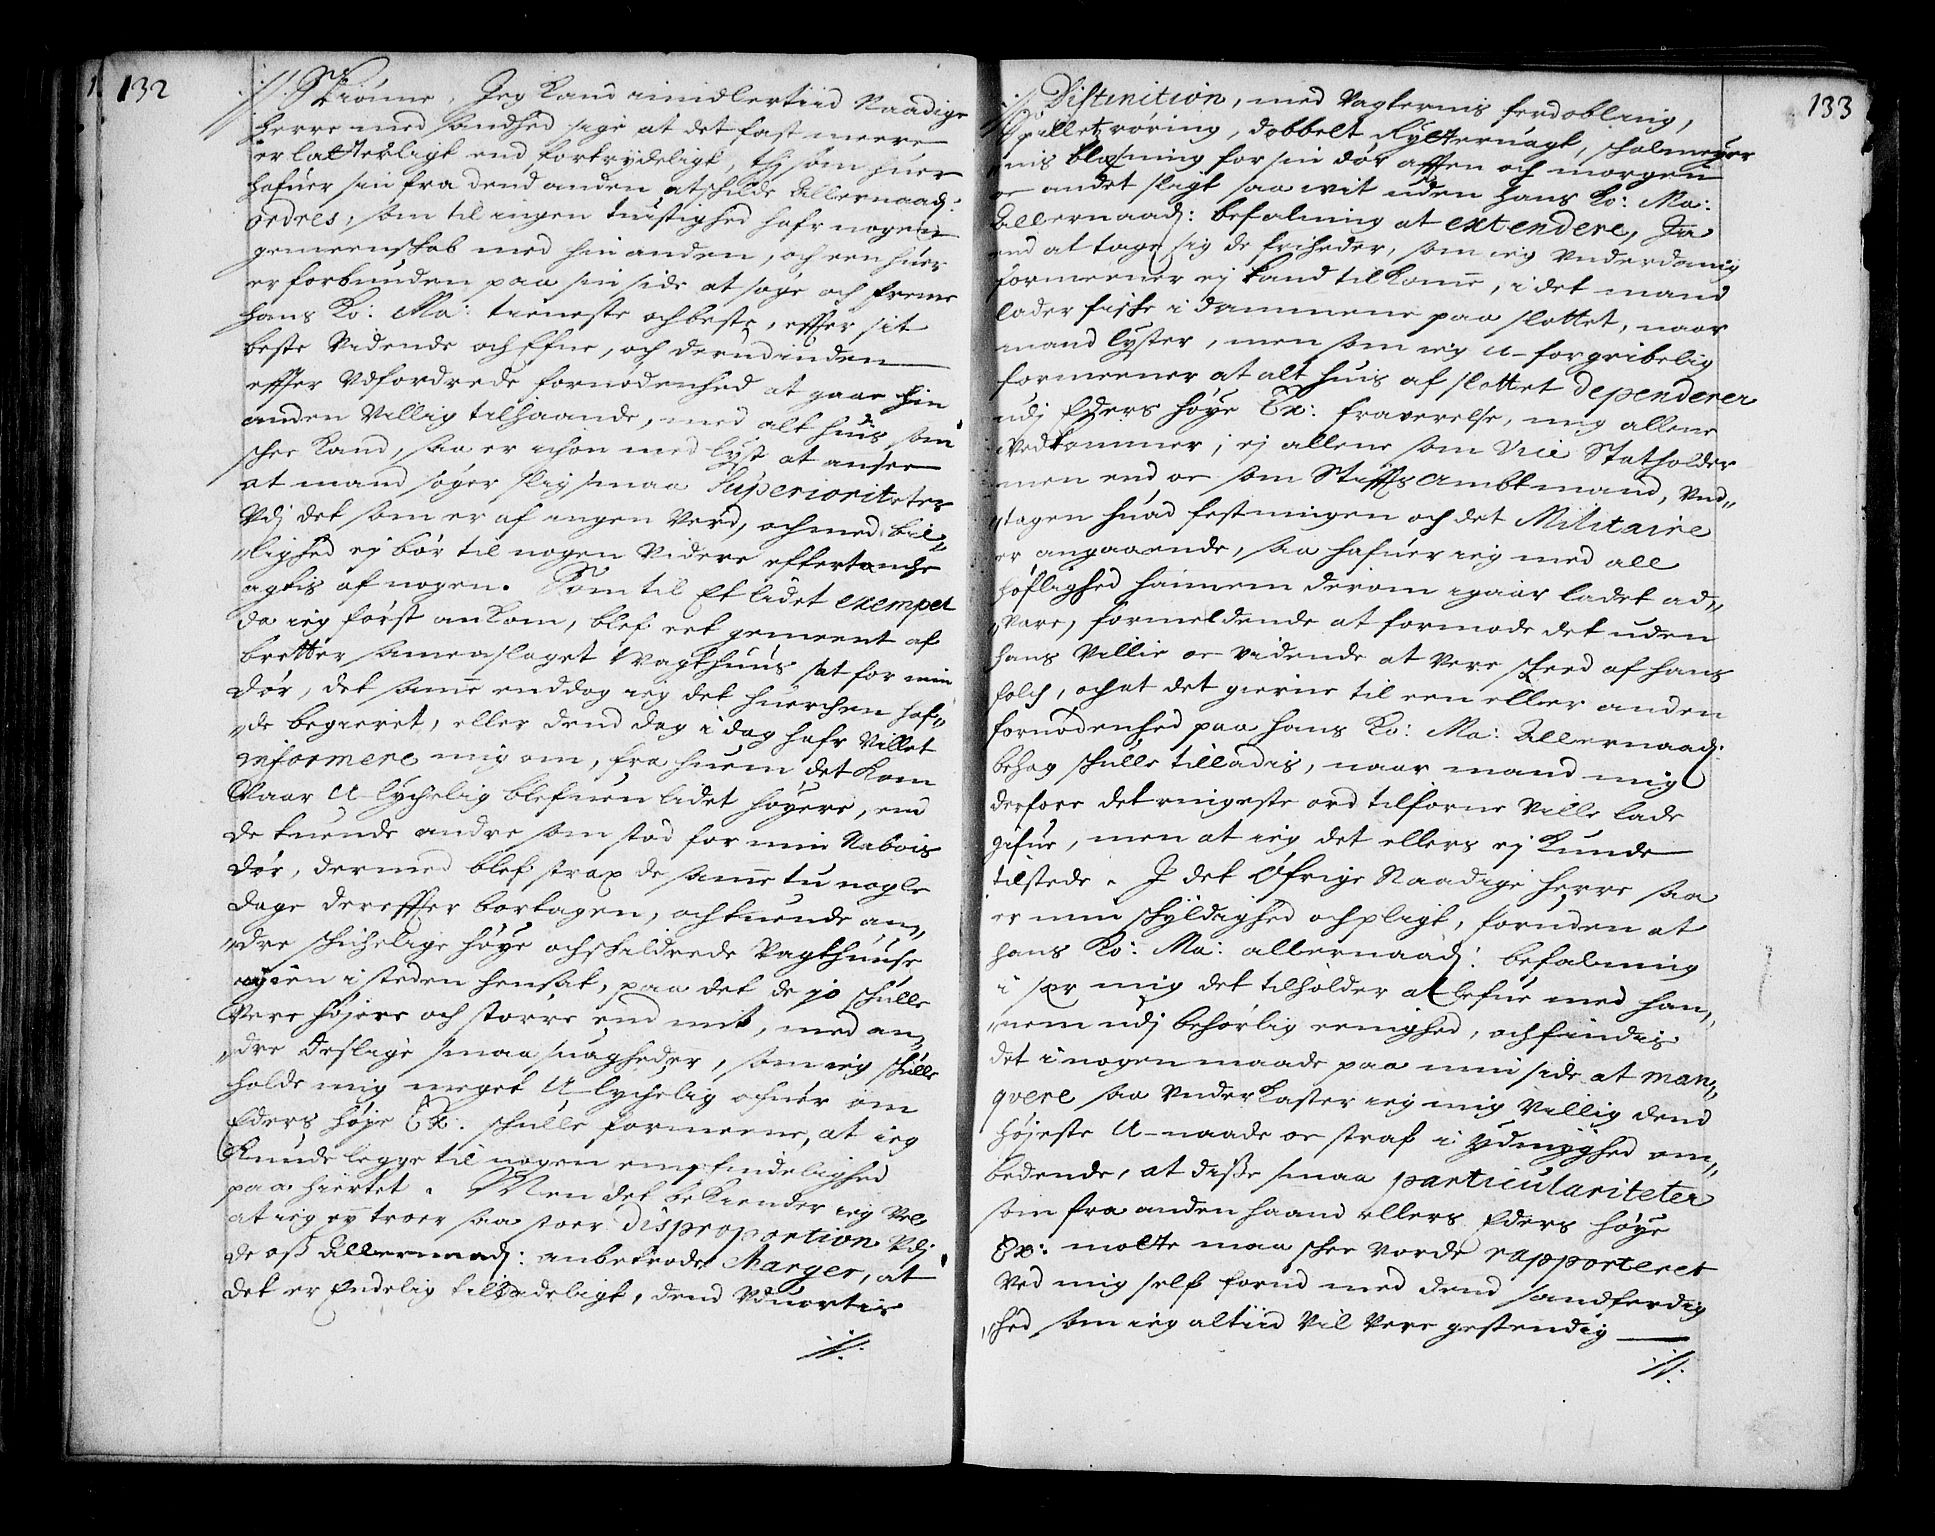 132
:/: Skiønne, Jeg Kand imidlertiid Naadige
Herre med sandhed sige at det fast meere
er latterligt end fortrydeligt, thj som huer
hafuer sin fra dend anden atschilde Allernaad:
ordres, som til ingen tuistighed hafr nogen
gemeenschab med hin anden, och een huer
er forbunden paa sin side at søge och freme
hans Ko: Ma: tieneste och beste, effter sit
beste Vidende och Efne, och derudinden
effter Udfordrede fornødenhed at gaae hin
anden Villig tilhaande, med alt huis som
schee Kand, saa er ichon med lyst at ansee
at mand søger slig smaa Superioriteter
Vdj det som er af ingen Verd, och med bil„
„lighed ej bør til nogen Videre effertanche
agtis af nogen. Som til Et lidet exempel
da ieg først ankom, blef eet gemeent af
bretter sammenslaget Vagthuus sat for min
dør, det samme enddog ieg det huerchen haf„
„de begieret, eller dend dag i dag hafr Villet
informere mig om, fra huem det kom
Vaar U-lychelig blefuen lidet høyere, end
de tuende andre som stod for min Nabois
dør, dermed blef strax de samme tu nogle
dage dereffter bortagen, och tuende an„
„dre schichelige høye och schildrede Vagthuuse
igien i steden hensat, paa det de jo schulle
Vere høyere och større end mit, med an„
„dre deslige smaa suagheder, som ieg schulle
holde mig meget U-lychelig ofuer om
Eders høje Ex: schulle formeene, at ieg
Kunde legge til nogen empfindelighed
paa hiertet. Men det bekiender ieg Vel
at ieg ej troer saa stoer disproportion Vdj
de oß Allernaad: anbetrode Charger, at
det er Endelig tilladeligt, dend Uduortis
:/:
133
:/: Distinction, med Vagternis fordobling,
Spillets røring, dobbelt Rytternagt, schalmeyer
„nis blæsning for sin dør afften och morgen
oc andet sligt saa wit uden hans Ko: Ma:
Allernaad: befalning at extendere, Ja
end at tage sig de friheder, som ieg Vnderdanig
formeener ej kand tilkomme, i det mand
lader fische i dammene paa slottet, naar
mand lyster, men som ieg U-forgribelig
formeener at alt huis af slottet dependerer
udj Eders høye Ex: fraverelse, mig allene
Vedkommer, ej allene som Vice Statholder
men end oc som Stiffts Ambtmand, Und„
„tagen huad festningen och det Militaire
er angaaende, saa hafuer ieg med all
høflighed hannem derom igaar ladet ad„
„Vare, formeldende at formode det uden
hans Villie oc vidende at Vere scheed af hans
folch, och at det gierne til een eller anden
fornødenhed paa hans Ko: Ma: Allernaad:
behag schulle tilladis, naar mand mig
derfore det ringeste ord tilforne Ville lade
gifue, men at ieg det ellers ej Kunde
tilstede. I det Øfrige Naadige Herre saa
er min schyldighed och pligt, foruden at
hans Ko: Ma: allernaad: befalning
i sær mig det tilholder at lefue med han„
„nem udj behørlig eenighed, och findis
det i nogen maade paa min side at man„
qvere saa Underkaster ieg mig Villig dend
høyeste U-naade oc straf i ydmyghed om„
bedende, at diße smaa particulariteter
som fra anden haand ellers Eders høye
Ex: motte maa schee vorde rapporteret
Ved mig self fornd med dend sandferdig
„hed som ieg altiid Vil Vere gestendig
:/: